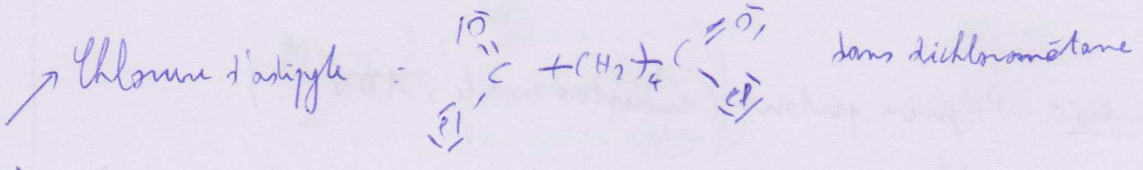 → Chlorure d'adipyle : O=C(Cl)-(CH2)4-C(=O)Cl dans dichlorométane